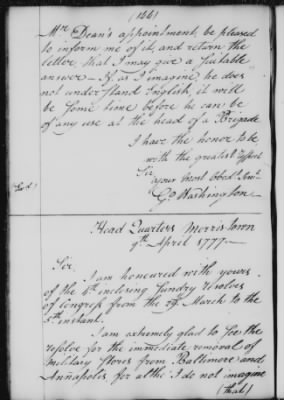 (144)
Mr. Dean's appointment, be pleased
to inform me of it, and return the
letter, that I may give a suitable
answer — If as I imagine, he does
not understand English, it will
be some time before he can be
of any use at the head of a Brigade
I have the honor to be
with the greatest respect
Sir
your most Obedt. Servt.
Go Washington
Head Quarters Morris town
9th April 1777 —
Sir,
I am honoured with yours
of the 5th inclosing Sundry resolves
of Congress from the 29th March to the
5th instant.
I am extremely glad to see the
resolve for the immediate removal of
Military Stores from Baltimore and
Annapolis, for altho' I do not imagine
(that)